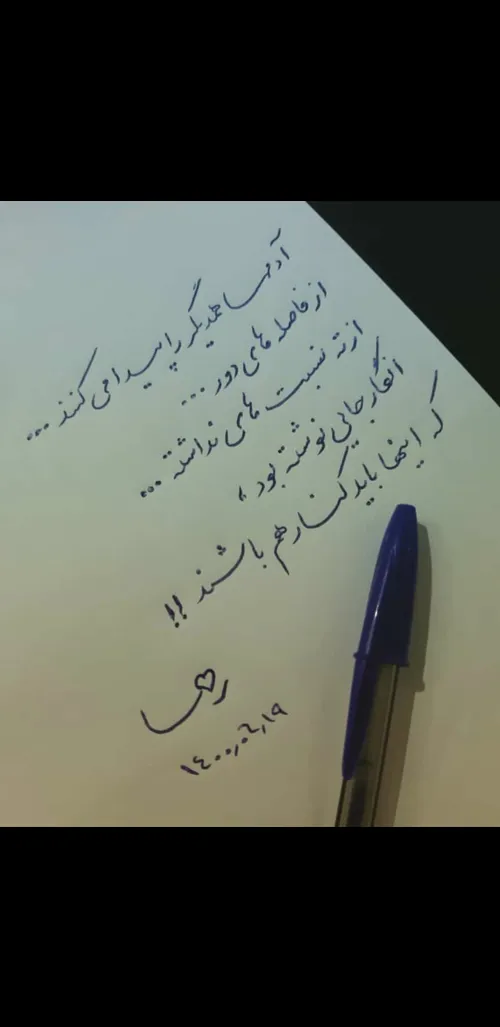 آدمها همدیگر را پیدا می کنند...
از فاصله های دور...
از ته نسبت های نداشته...
انگار جایی نوشته بود،
که اینها باید کنار هم باشند !!
۱۴۰۰,۰۶,۱۹